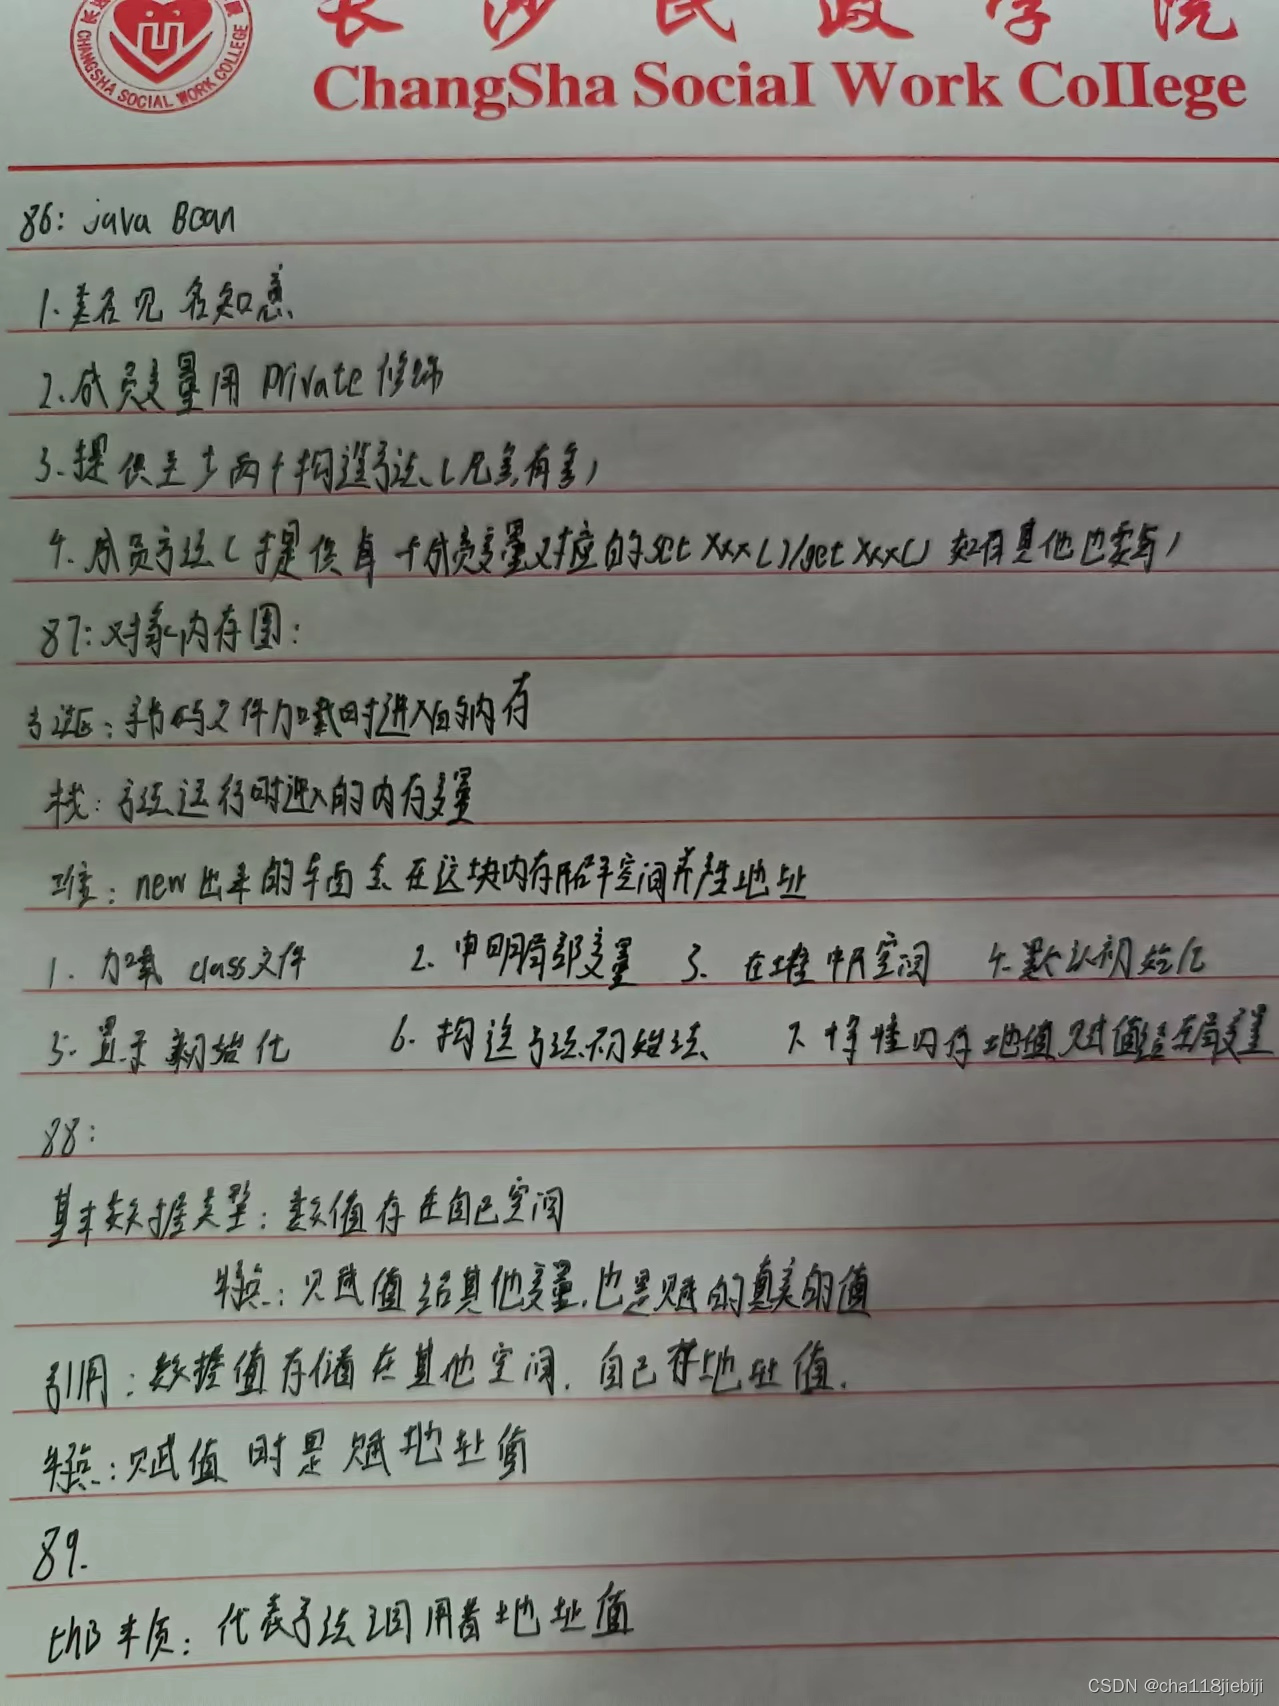 长沙民政学院
CHANGSHA SOCIAL WORK COLLEGE
ChangSha Social Work College
86: java Bean
1. 类名见名知意
2. 成员变量用 private 修饰
3. 提供至少两个构造方法(无参,有参)
4. 成员方法(提供每一个成员变量对应的setXxx()/getXxx() 如有其他也要写)
87: 对象内存图:
方法区: 字节码文件加载时进入的内存
栈: 方法运行时进入的内存变量
堆: new出来的东西会在这块内存开空间并产生地址
1. 加载 class文件 2. 申明局部变量 3. 在堆中开空间 4. 默认初始化
5. 显示初始化 6. 构造方法初始法 7. 将堆内存地值赋值给局变量
88:
基本数据类型: 数值存在自己空间
特点: 赋值给其他变量,也是赋的真实的值
引用: 数据值存储在其他空间, 自己存地址值.
特点: 赋值时是赋地址值
89.
this 本质: 代表方法调用者地址值
CSDN @cha118jiebiji